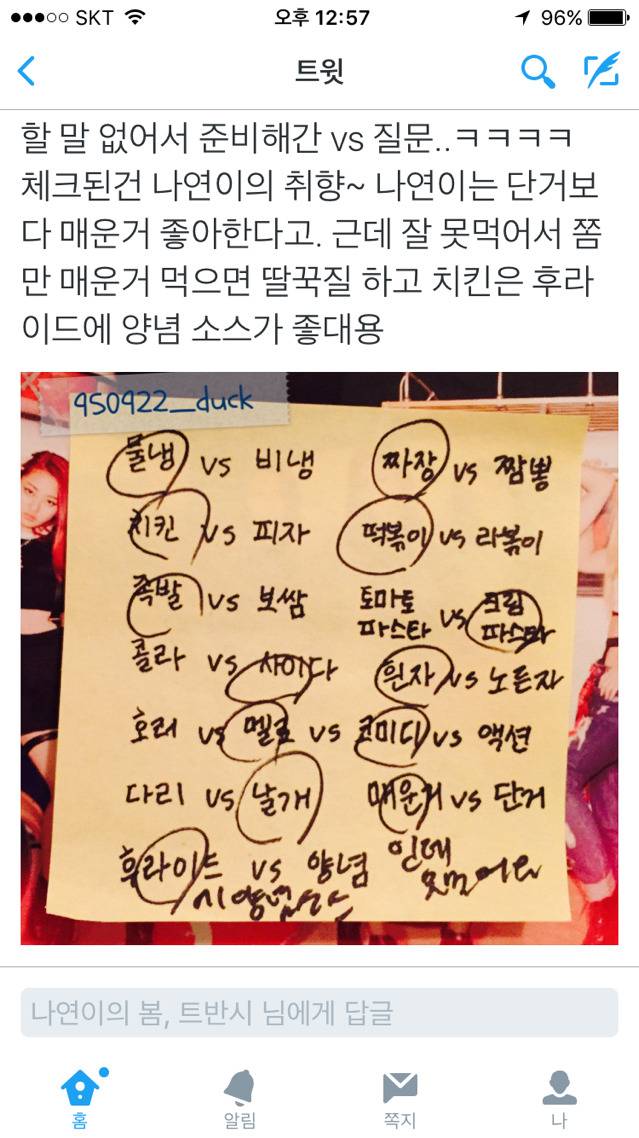 SKT 오후 12:57 96%
트윗
할 말 없어서 준비해간 vs 질문..ㅋㅋㅋㅋ
체크된건 나연이의 취향~ 나연이는 단거보
다 매운거 좋아한다고. 근데 잘 못먹어서 쫌
만 매운거 먹으면 딸꾹질 하고 치킨은 후라
이드에 양념 소스가 좋대용
950922_duck
물냉 vs 비냉 짜장 vs 짬뽕
치킨 vs 피자 떡볶이 vs 라볶이
족발 vs 보쌈 토마토 파스타 vs 크림 파스타
콜라 vs 사이다 흰자 vs 노른자
호러 vs 멜로 vs 코미디 vs 액션
다리 vs 날개 매운거 vs 단거
후라이드 vs 양념 인데 못먹어요
시양념소스
나연이의 봄, 트반시 님에게 답글
홈 알림 쪽지 나